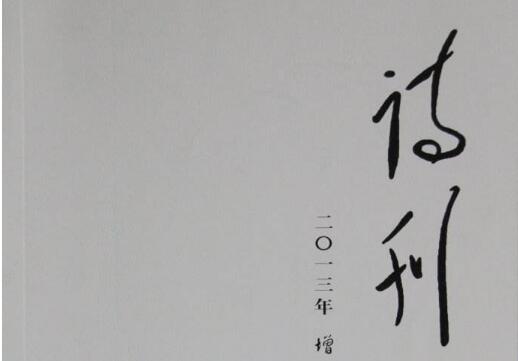 诗刊
二〇一三年 增